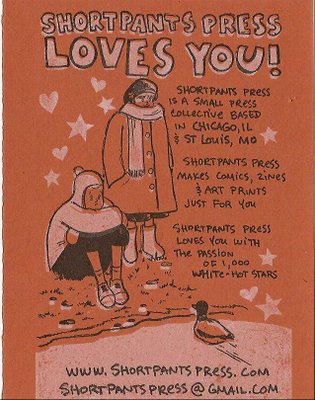 SHORTPANTS PRESS
LOVES YOU!
SHORTPANTS PRESS
IS A SMALL PRESS
COLLECTIVE BASED
IN CHICAGO, IL
& ST LOUIS, MO
SHORTPANTS PRESS
MAKES COMICS, ZINES
& ART PRINTS
JUST FOR YOU
SHORTPANTS PRESS
LOVES YOU WITH
THE PASSION
OF 1,000
WHITE-HOT STARS
WWW.SHORTPANTSPRESS.COM
SHORTPANTSPRESS@GMAIL.COM